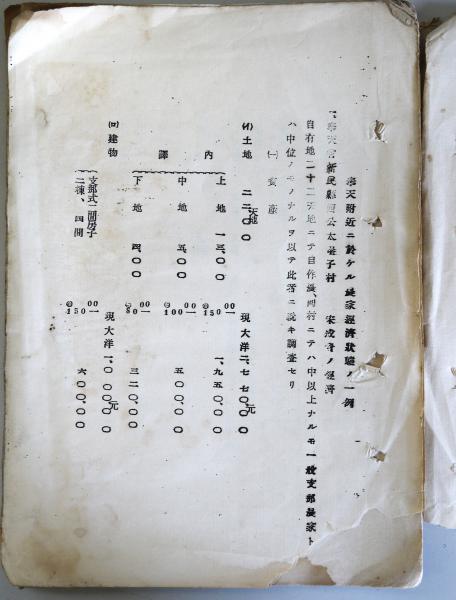 奉天附近ニ於ケル農家經濟狀態ノ一例
一、奉天省新民縣 公太 子村 宋 ノ經濟
自有地二十二天地ニテ自作農、同村ニテハ中以上ナルモ一般支那農家ト
ハ中位ノモノナルヲ以テ此者ニ就キ調査セリ
㈠ 資產
(イ) 土地 二二、〇〇天地 現大洋二、七七〇、〇〇元
內譯
上地 一三、〇〇 @150.00 一、九五〇、〇〇
中地 五、〇〇 @100.00 五〇〇、〇〇
下地 四、〇〇 @80.00 三二〇、〇〇
(ロ) 建物 現大洋一、〇〇〇、〇〇元
支那式二間房子二棟、四間 @150.00 六〇〇、〇〇